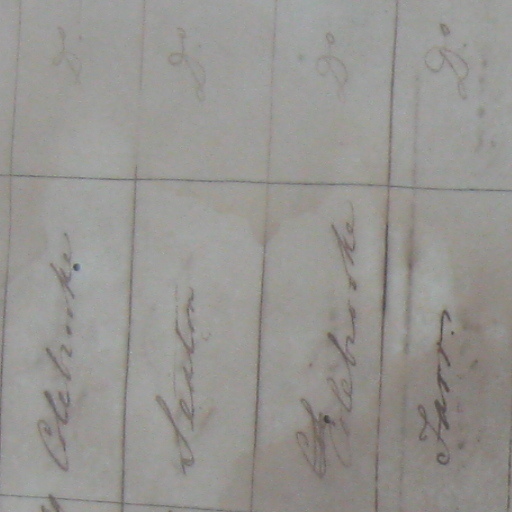 Colebrooke Do
Seaton Do
Colebrooke Do
Farr. Do